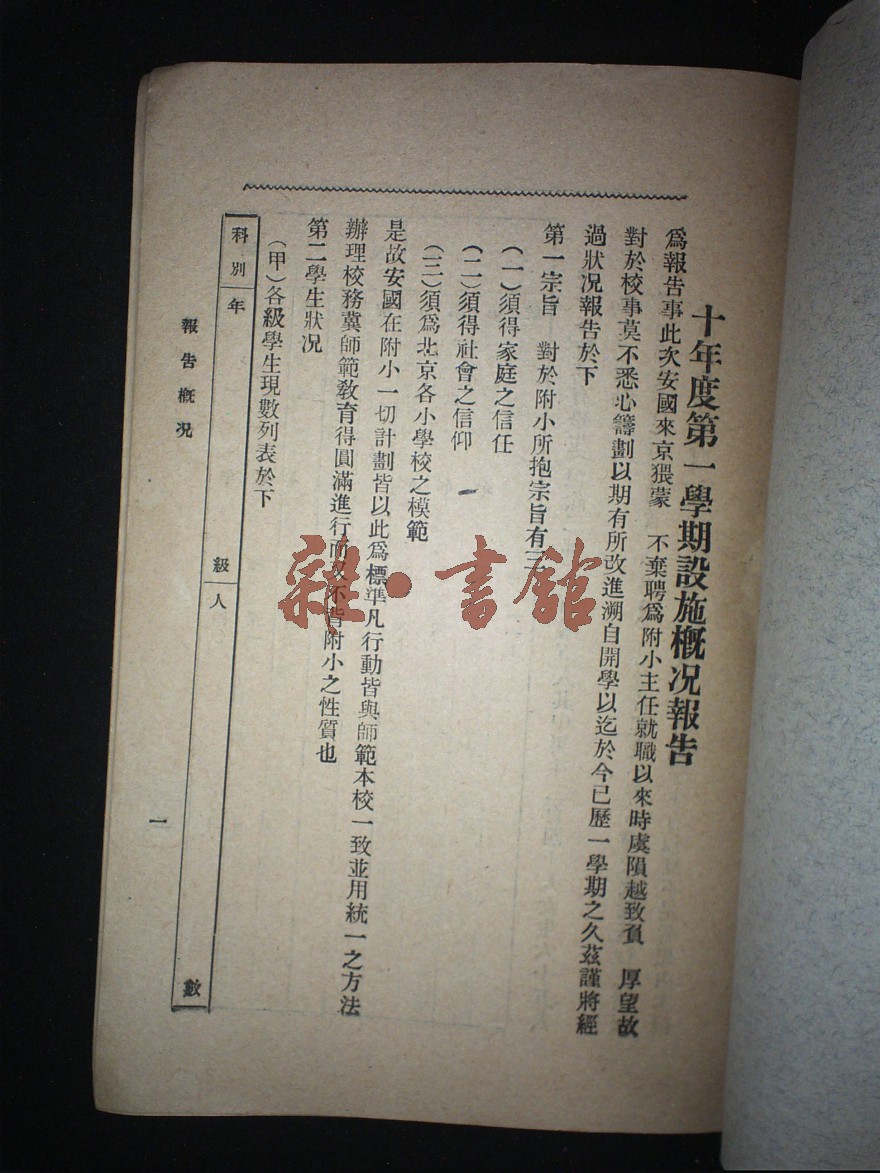 十年度第一學期設施概况報告
爲報告事此次安國來京猥蒙　不棄聘爲附小主任就職以來時虞隕越致負　厚望故
對於校事莫不悉心籌劃以期有所改進溯自開學以迄於今已歷一學期之久茲謹將經
過狀况報告於下
第一宗旨　對於附小所抱宗旨有三
（一）須得家庭之信任
（二）須得社會之信仰
（三）須爲北京各小學校之模範
是故安國在附小一切計劃皆以此爲標準凡行動皆與師範本校一致並用統一之方法
辦理校務冀師範敎育得圓滿進行而又不背附小之性質也
第二學生狀况
（甲）各級學生現數列表於下
科別　年級　人數
報告概况
一
雜·書館